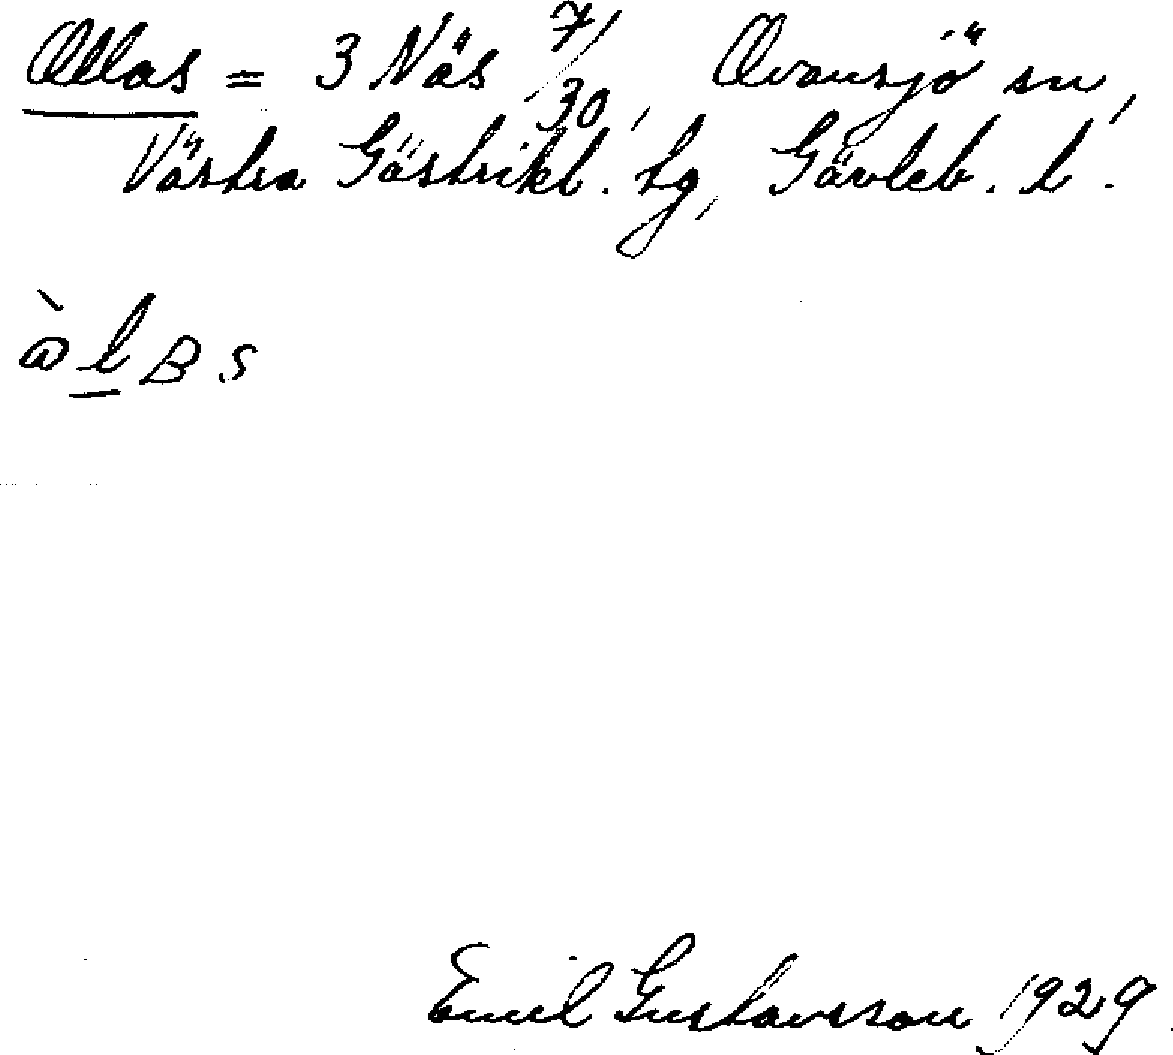 Ollas = 3 Näs 7/30, Ovansjö sn,
Västra Gästrikl. tg, Gävleb. l.
Emil Gustavsson 1929